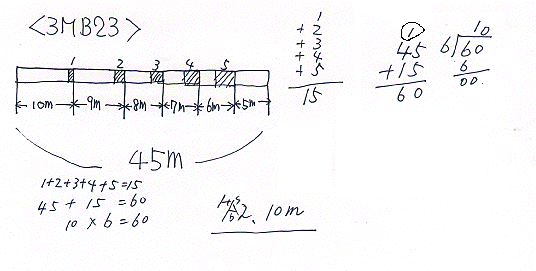 <3MB23>
1 2 3 4 5
10m 9m 8m 7m 6m 5m
45m
1+2+3+4+5=15
45 + 15 = 60
10 × 6 = 60
1
+ 2
+ 3
+ 4
+ 5
15
1
45
+ 15
60
10
6)60
6
00.
10m